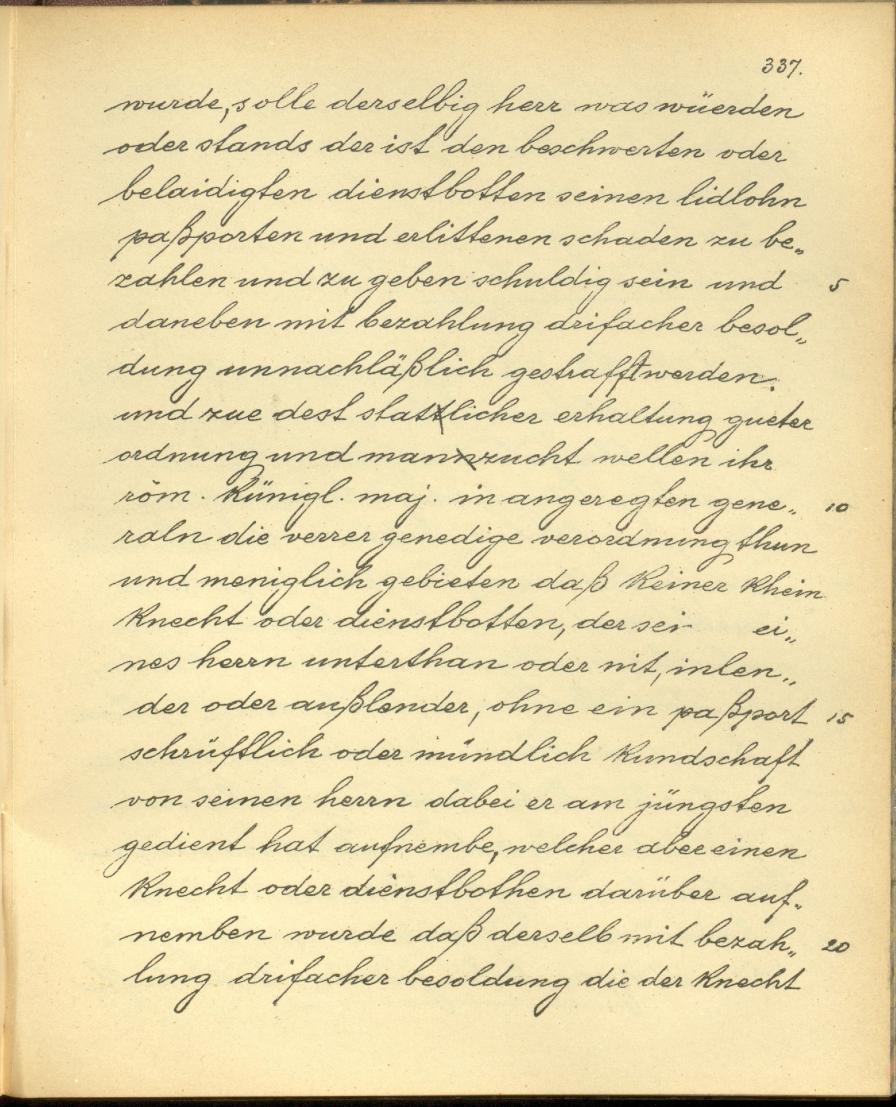 337.
wurde, solle derselbig herr was wüerden
oder stands der ist den beschwerten oder
belaidigten dienstbotten seinen lidlohn
paßporten und erlittenen schaden zu be„
zahlen und zu geben schuldig sein und 5
daneben mit bezahlung drifacher besol„
dung unnachläßlich gestrafft werden.
und zue dest stattlicher erhaltung gueter
ordnung und mannzucht wellen ihr
röm. künigl. maj. in angeregten gene„ 10
raln die verrer genedige verordnung thun
und meniglich gebieten daß keiner khein
knecht oder dienstbotten, der sei ei„
nes herrn unterthan oder nit, inlen„
der oder außlender, ohne ein paßport 15
schrüftlich oder mündlich kundschaft
von seinen herrn dabei er am jüngsten
gedient hat aufnembe, welcher aber einen
knecht oder dienstbothen darüber auf„
nemben wurde daß derselb mit bezah„ 20
lung drifacher besoldung die der knecht